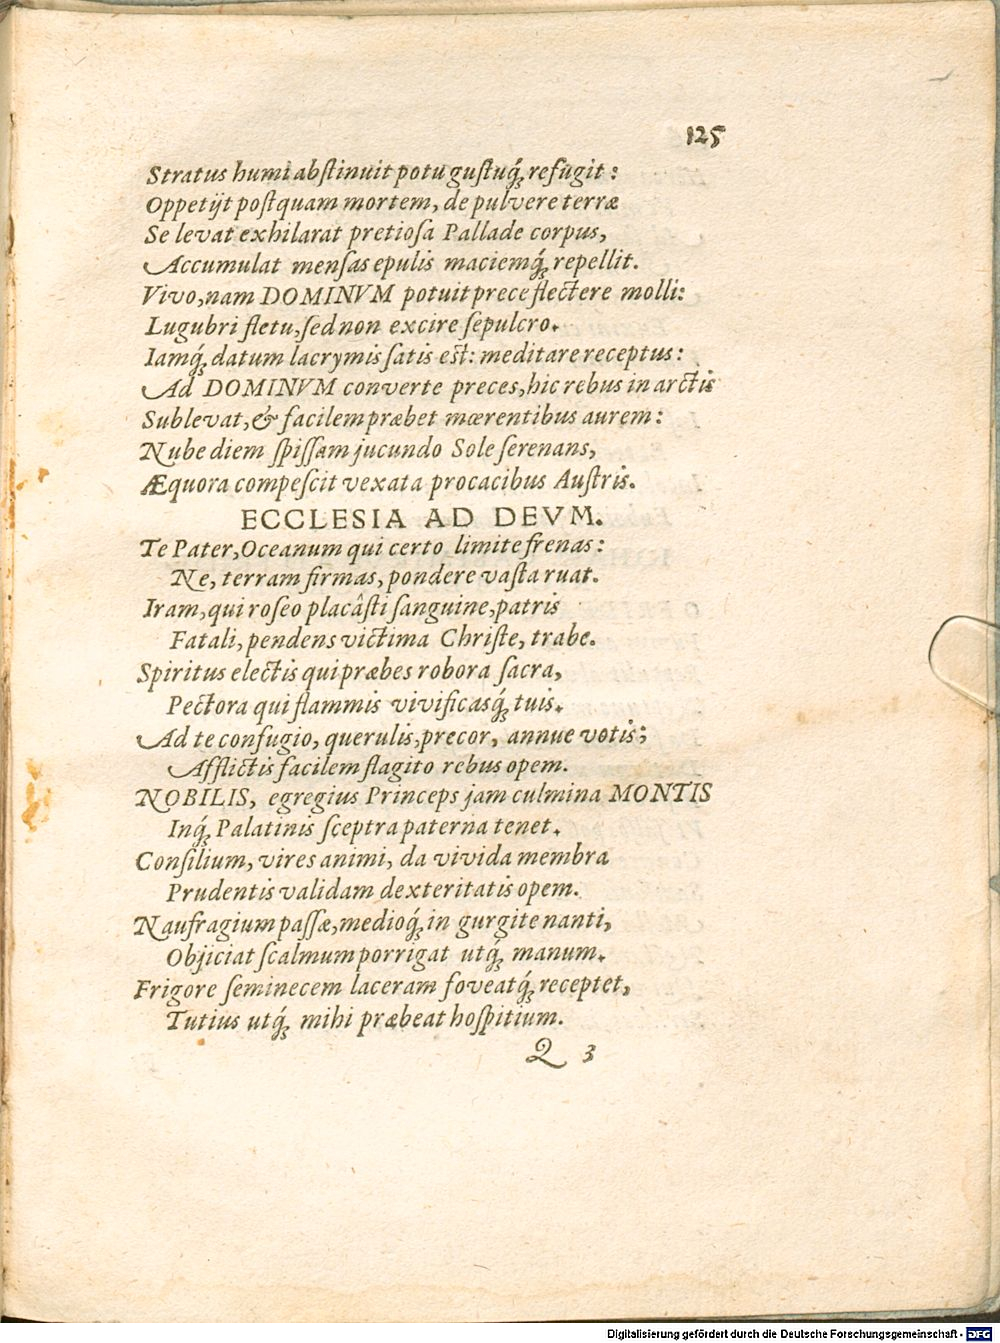 125
Stratus humi abſtinuit potu guſtuq́ꝫ refugit:
Oppetijt poſtquam mortem, de pulvere terræ
Se levat exhilarat pretioſa Pallade corpus,
Accumulat menſas epulis maciemq́ꝫ repellit.
Vivo, nam DOMINVM potuit prece flectere molli:
Lugubri fletu, ſed non excire ſepulcro.
Iamq́ꝫ datum lacrymis ſatis eſt: meditare receptus:
Ad DOMINVM converte preces, hic rebus in arctis
Sublevat, & facilem præbet mœrentibus aurem:
Nube diem ſpiſſam jucundo Sole ſerenans,
Æquora compeſcit vexata procacibus Auſtris.
ECCLESIA AD DEVM.
Te Pater, Oceanum qui certo limite frenas:
Ne, terram firmas, pondere vaſta ruat.
Iram, qui roſeo placâſti ſanguine, patris
Fatali, pendens victima Chriſte, trabe.
Spiritus electis qui præbes robora ſacra,
Pectora qui flammis vivificasq́ꝫ tuis.
Ad te confugio, querulis, precor, annue votis;
Afflictis facilem flagito rebus opem.
NOBILIS, egregius Princeps jam culmina MONTIS
Inq́ꝫ Palatinis ſceptra paterna tenet.
Conſilium, vires animi, da vivida membra
Prudentis validam dexteritatis opem.
Naufragium paſſæ, medioq́ꝫ in gurgite nanti,
Objiciat ſcalmum porrigat utq́ꝫ manum.
Frigore ſeminecem laceram foveatq́ꝫ receptet,
Tutius utq́ꝫ mihi præbeat hoſpitium.
Q 3
Digitalisierung gefördert durch die Deutsche Forschungsgemeinschaft - DFG